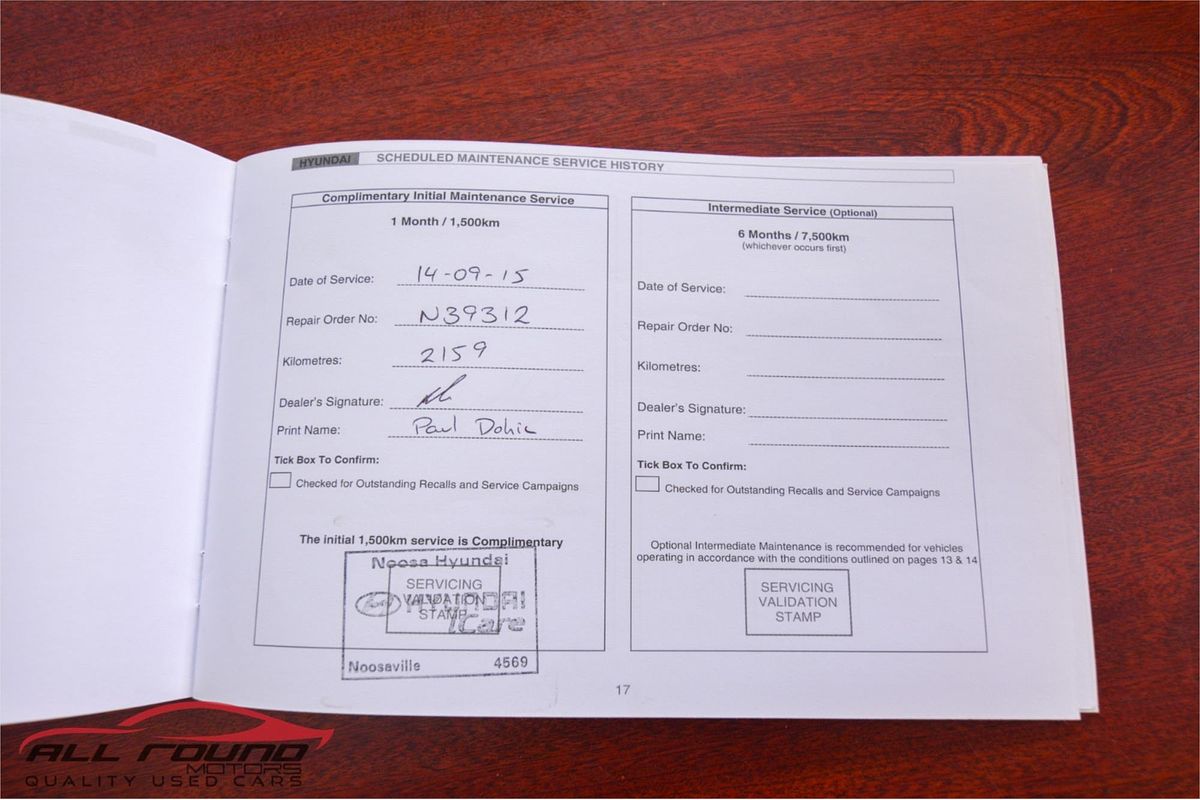 HYUNDAI SCHEDULED MAINTENANCE SERVICE HISTORY
Complimentary Initial Maintenance Service
1 Month / 1,500km
Date of Service: 14-09-15
Repair Order No: N39312
Kilometres: 2159
Dealer's Signature:
Print Name: Paul
Tick Box To Confirm:
Checked for Outstanding Recalls and Service Campaigns
The initial 1,500km service is Complimentary
Noosa Hyundai
SERVICING
VALIDATION
STAMP
HYUNDAI
iCare
Noosaville 4569
Intermediate Service (Optional)
6 Months / 7,500km
(whichever occurs first)
Date of Service:
Repair Order No:
Kilometres:
Dealer's Signature:
Print Name:
Tick Box To Confirm:
Checked for Outstanding Recalls and Service Campaigns
Optional Intermediate Maintenance is recommended for vehicles
operating in accordance with the conditions outlined on pages 13 & 14
SERVICING
VALIDATION
STAMP
17
ALL ROUND
MOTORS
QUALITY USED CARS